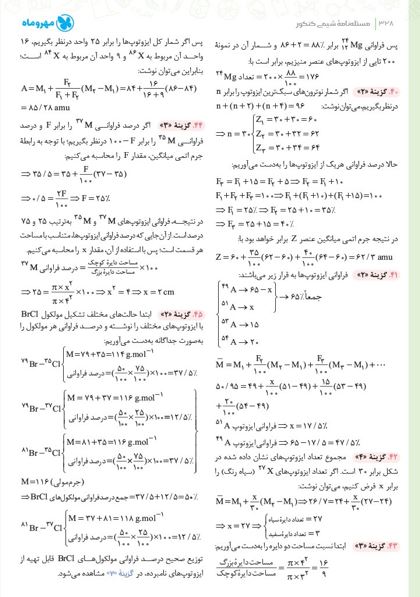 ۳۲۸ مسئله‌نامهٔ شیمی کنکور
مهروماه
پس فراوانی ²⁴₁₂Mg برابر ۸۸٪ = ۲ + ۸۶ و شمار آن در نمونهٔ
۲۰۰ تایی از ایزوتوپ‌های عنصر منیزیم، برابر است با:
تعداد ²⁴Mg = ۲۰۰ × ۸۸/۱۰۰ = ۱۷۶
۴۰. گزینهٔ «۲» اگر شمار نوترون‌های سبک‌ترین ایزوتوپ را برابر n
درنظر بگیریم، می‌توان نوشت: n + (n + ۲) + (n + ۴) = ۹۶
⇒ n = ۳۰ { Z₁ = ۳۰ + ۳۰ = ۶۰
Z₂ = ۳۰ + ۳۲ = ۶۲
Z₃ = ۳۰ + ۳۴ = ۶۴
حالا درصد فراوانی هریک از ایزوتوپ‌ها را به‌دست می‌آوریم:
F₃ = F₁ + ۱۵ = F₂ + ۵ ⇒ F₂ = F₁ + ۱۰
F₁ + F₂ + F₃ = ۱۰۰ ⇒ F₁ + (F₁ + ۱۰) + (F₁ + ۱۵) = ۱۰۰
⇒ F₁ = ۲۵٪ ⇒ F₂ = ۲۵ + ۱۰ = ۳۵٪
⇒ F₃ = ۲۵ + ۱۵ = ۴۰٪
در نتیجه جرم اتمی میانگین عنصر Z برابر خواهد بود با:
Z = ۶۰ + ۳۵/۱۰۰ (۶۲ − ۶۰) + ۴۰/۱۰۰ (۶۴ − ۶۰) = ۶۲/۳ amu
۴۱. گزینهٔ «۲» فراوانی ایزوتوپ‌ها به قرار زیر می‌باشند:
{ ⁴⁹A → ۶۵ − x
⁵¹A → x } جمعاً → ۶۵٪
⁵³A → ۱۵
⁵⁴A → ۲۰
M̄ = M₁ + F₂/۱۰۰ (M₂ − M₁) + F₃/۱۰۰ (M₃ − M₁) + ⋯
۵۰/۹۵ = ۴۹ + x/۱۰۰ (۵۱ − ۴۹) + ۱۵/۱۰۰ (۵۳ − ۴۹)
+ ۲۰/۱۰۰ (۵۴ − ۴۹)
فراوانی ایزوتوپ ⁵¹A ⇒ x = ۱۷/۵٪
فراوانی ایزوتوپ ⁴⁹A ⇒ ۶۵ − ۱۷/۵ = ۴۷/۵٪
۴۲. گزینهٔ «۴» مجموع تعداد ایزوتوپ‌های نشان داده شده در
شکل برابر ۳۰ است. اگر تعداد ایزوتوپ‌های ²⁷X (سیاه رنگ) را
برابر x فرض کنیم، می‌توان نوشت:
M̄ = M₁ + x/۳۰ (M₂ − M₁) ⇒ ۲۶/۷ = ۲۴ + x/۳۰ (۲۷ − ۲۴)
⇒ x = ۲۷ ⇒ { تعداد دایرهٔ سیاه = ۲۷
تعداد دایرهٔ سفید = ۳
۴۳. گزینهٔ «۳» ابتدا نسبت مساحت دو دایره را به‌دست می‌آوریم:
مساحت دایرهٔ بزرگ / مساحت دایرهٔ کوچک = π × ۴² / π × ۳² = ۱۶/۹
پس اگر شمار کل ایزوتوپ‌ها را برابر ۲۵ واحد درنظر بگیریم، ۱۶
واحد آن مربوط به ⁸⁶X و ۹ واحد آن مربوط به ⁸⁴X است؛
بنابراین می‌توان نوشت:
A = M₁ + F₂/(F₁ + F₂) (M₂ − M₁) = ۸۴ + ۱۶/(۱۶ + ۹) (۸۶ − ۸۴)
= ۸۵/۲۸ amu
۴۴. گزینهٔ «۳» اگر درصد فراوانی ³⁷M را برابر F و درصد
فراوانی ³⁵M را برابر ۱۰۰ − F درنظر بگیریم؛ با توجه به رابطهٔ
جرم اتمی میانگین، مقدار F را محاسبه می‌کنیم:
⇒ ۳۵/۵ = ۳۵ + F/۱۰۰ (۳۷ − ۳۵)
⇒ ۰/۵ = ۲F/۱۰۰ ⇒ F = ۲۵٪
در نتیجه، فراوانی ایزوتوپ‌های ³⁷M و ³⁵M به‌ترتیب ۲۵ و ۷۵
درصد است. از آن‌جایی که درصد فراوانی ایزوتوپ‌ها، متناسب با مساحت
هر قسمت است؛ پس با استفاده از آن، مقدار x را محاسبه می‌کنیم.
درصد فراوانی ³⁷M = مساحت دایرهٔ کوچک / مساحت دایرهٔ بزرگ × ۱۰۰
⇒ ۲۵ = π × x² / π × ۴² × ۱۰۰ ⇒ x² = ۴ ⇒ x = ۲ cm
۴۵. گزینهٔ «۳» ابتدا حالت‌های مختلف تشکیل مولکول BrCl
با ایزوتوپ‌های مختلف را نوشته و درصد فراوانی هر مولکول را
به‌صورت جداگانه به‌دست می‌آوریم:
⁷⁹Br − ³⁵Cl { M = ۷۹ + ۳۵ = ۱۱۴ g.mol⁻¹
درصد فراوانی = (۵۰/۱۰۰ × ۷۵/۱۰۰) × ۱۰۰ = ۳۷/۵٪
⁷⁹Br − ³⁷Cl { M = ۷۹ + ۳۷ = ۱۱۶ g.mol⁻¹
درصد فراوانی = (۵۰/۱۰۰ × ۲۵/۱۰۰) × ۱۰۰ = ۱۲/۵٪
⁸¹Br − ³⁵Cl { M = ۸۱ + ۳۵ = ۱۱۶ g.mol⁻¹
درصد فراوانی = (۵۰/۱۰۰ × ۷۵/۱۰۰) × ۱۰۰ = ۳۷/۵٪
M = ۱۱۶ (جرم مولی)
⇒ جمع درصد فراوانی مولکول‌های BrCl = ۳۷/۵ + ۱۲/۵ = ۵۰٪
⁸¹Br − ³⁷Cl { M = ۳۷ + ۸۱ = ۱۱۸ g.mol⁻¹
درصد فراوانی = (۵۰/۱۰۰ × ۲۵/۱۰۰) × ۱۰۰ = ۱۲/۵٪
توزیع صحیح درصد فراوانی مولکول‌های BrCl قابل تهیه از
ایزوتوپ‌های نام‌برده، در گزینهٔ «۳» مشاهده می‌شود.